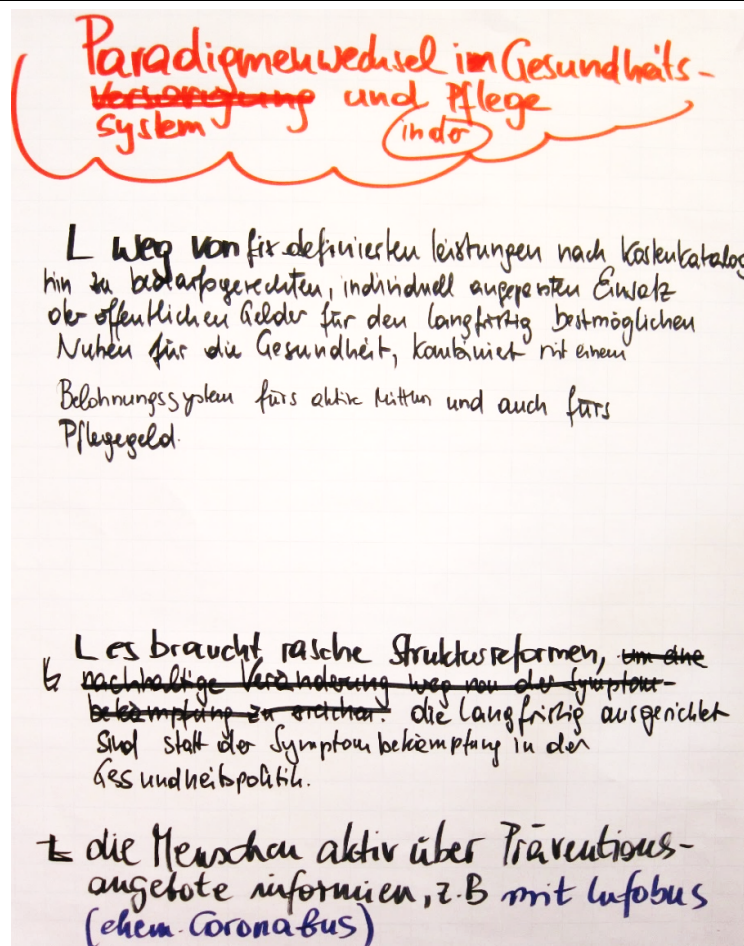 Paradigmenwechsel im Gesundheits-
Versorgung und Pflege
system in der
L weg von fix definierten leistungen nach Kostenkatalog
hin zu bedarfsgerechten, individuell angepassten Einsatz
der öffentlichen Gelder für den langfristig bestmöglichen
Nutzen für die Gesundheit, kombiniert mit einem
Belohnungssystem fürs aktive und auch fürs
Pflegegeld.
L es braucht rasche Strukturreformen, um eine
nachhaltige Veränderung weg von der Symptom-
bekämpfung zu erreichen. die langfristig ausgerichtet
sind statt der Symptombekämpfung in der
Gesundheitspolitik.
die Menschen aktiv über Präventions-
angebote informieren, z.B mit Infobus
(ehem. Coronabus)